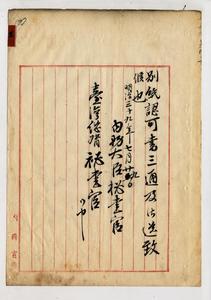 別紙認可書三通及御送致
候也
明治三十九年七月廿九日
内務大臣秘書官
臺灣總督秘書官
内務省